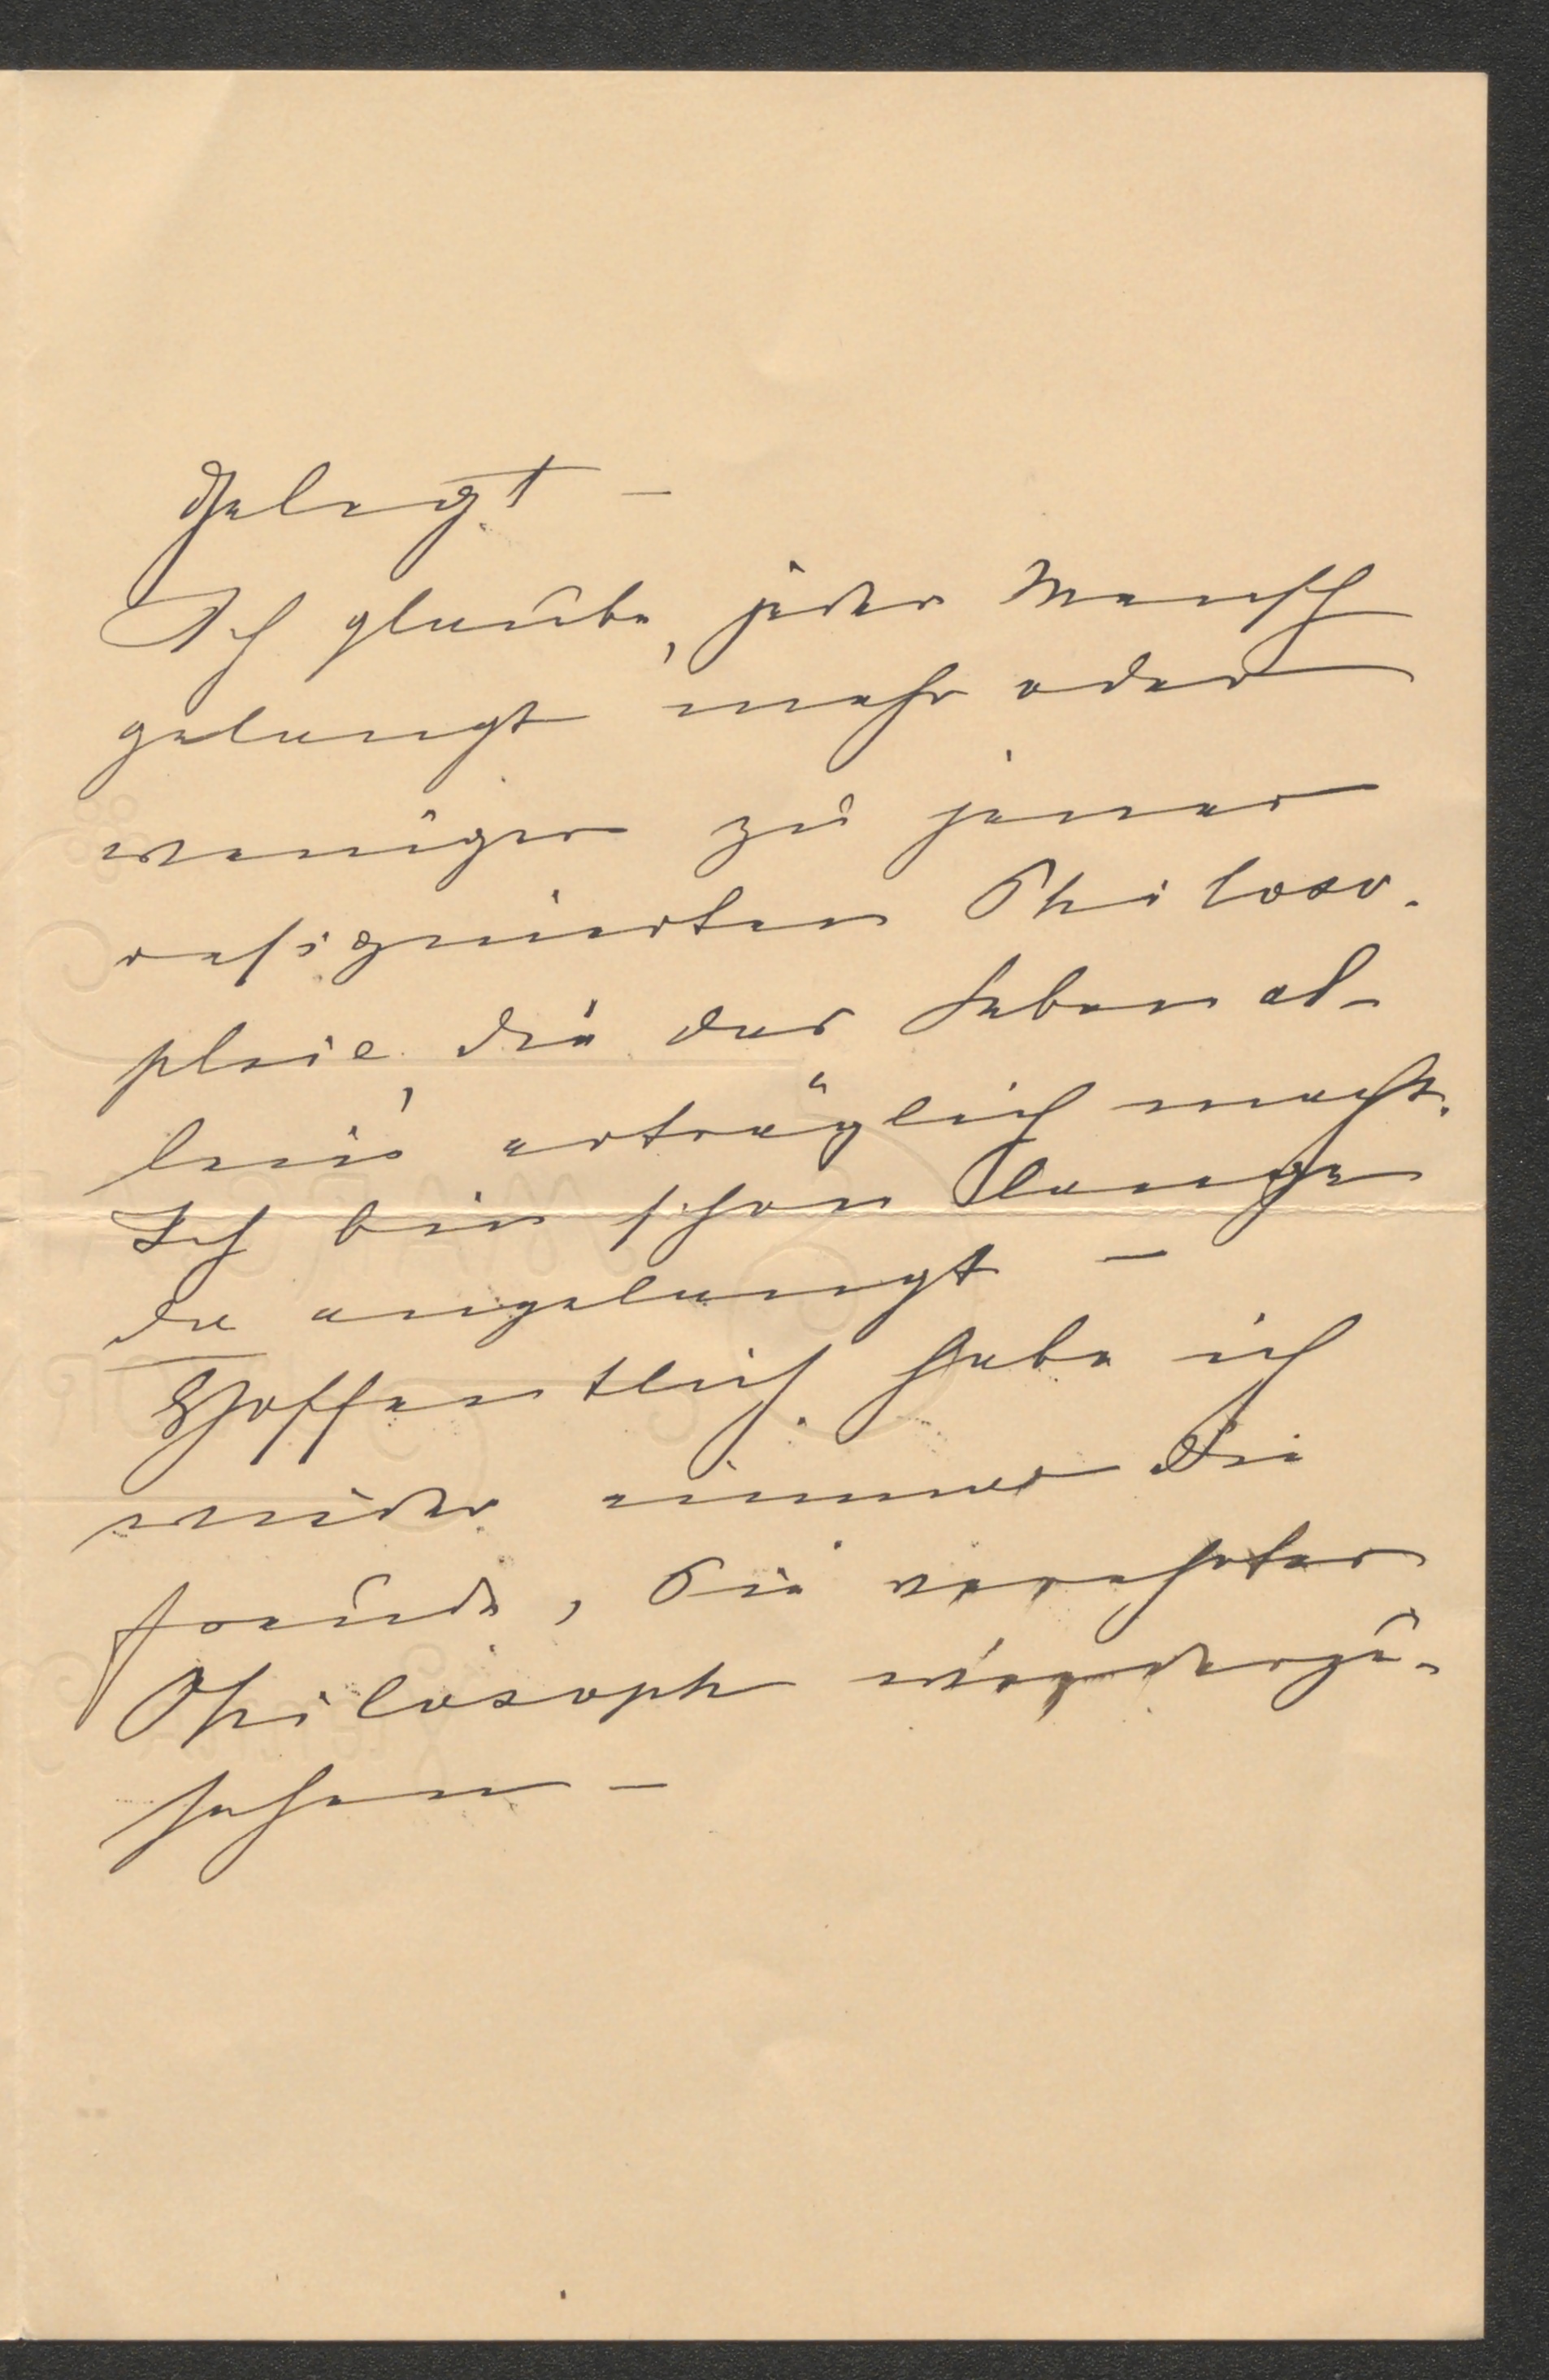 gelegt —
Ich glaube, jeder Mensch
gelangt mehr oder
weniger zu jener
resignierten Philoso-
phie, die das Leben al-
lein erträglich macht.
Ich bin schon lange
da angelangt —
Hoffentlich habe ich
wieder einmal die
Freude, Sie verehrter
Philosoph wiederzu-
sehen —